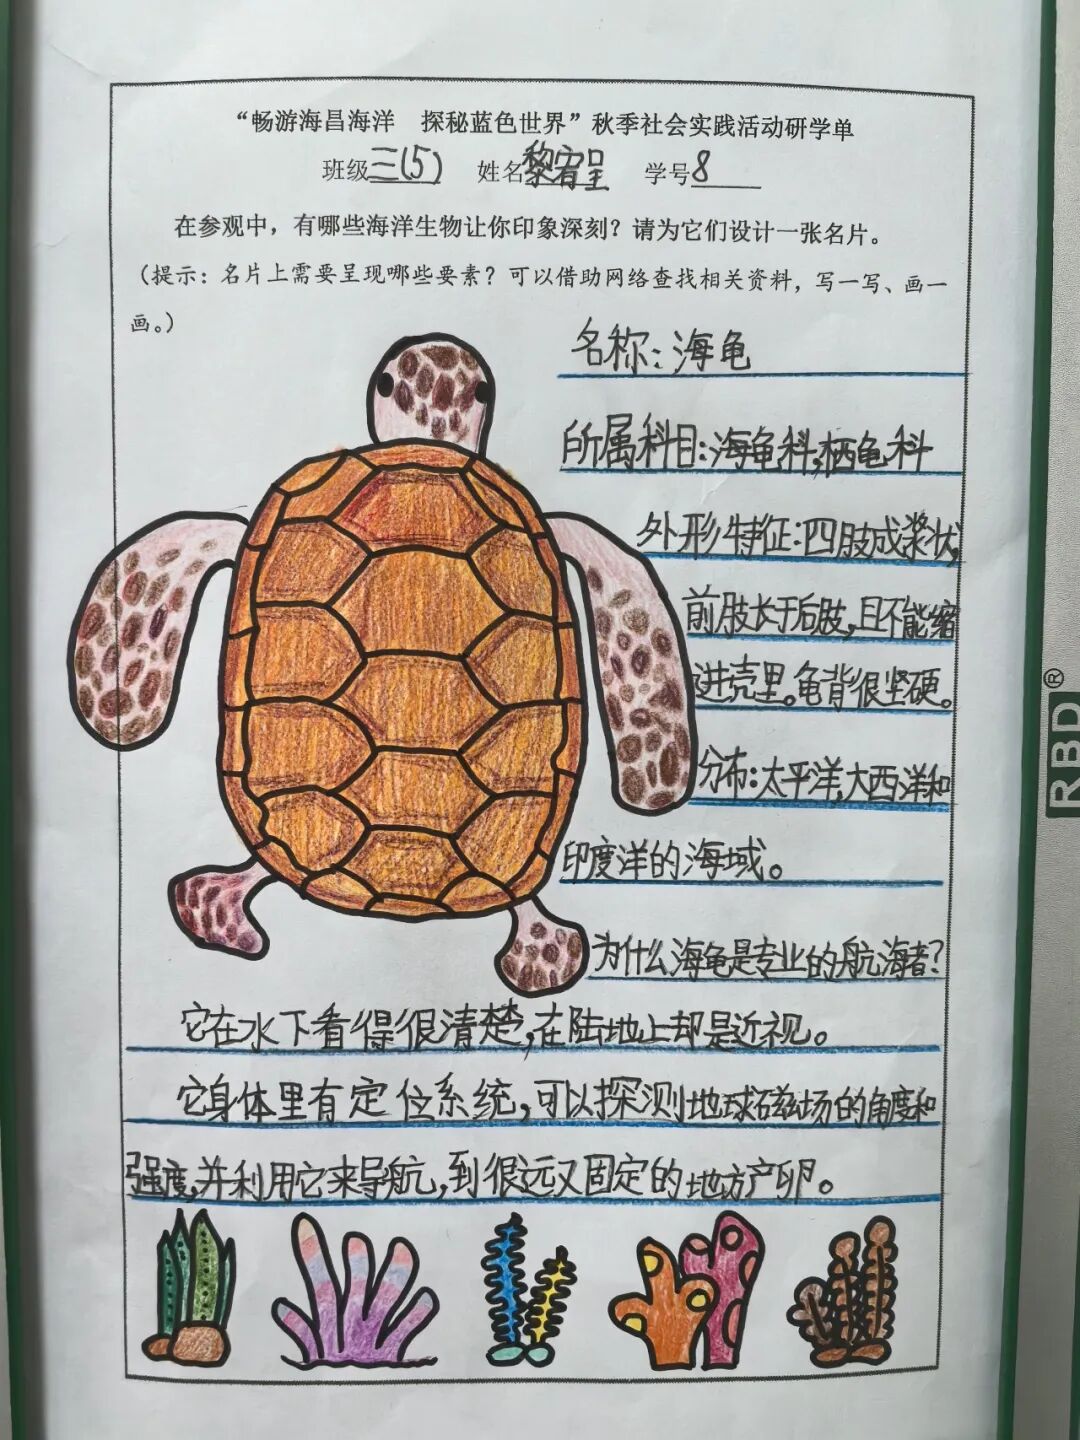 “畅游海昌海洋 探秘蓝色世界”秋季社会实践活动研学单
班级三(5) 姓名黎宥呈 学号8
在参观中，有哪些海洋生物让你印象深刻？请为它们设计一张名片。
（提示：名片上需要呈现哪些要素？可以借助网络查找相关资料，写一写、画一
画。）
名称：海龟
所属科目：海龟科，栖龟科
外形特征：四肢成桨状，
前肢长于后肢，且不能缩
进壳里。龟背很坚硬。
分布：太平洋，大西洋和
印度洋的海域。
为什么海龟是专业的航海者？
它在水下看得很清楚，在陆地上却是近视。
它身体里有定位系统，可以探测地球磁场的角度和
强度，并利用它来导航，到很远又固定的地方产卵。
RBD®